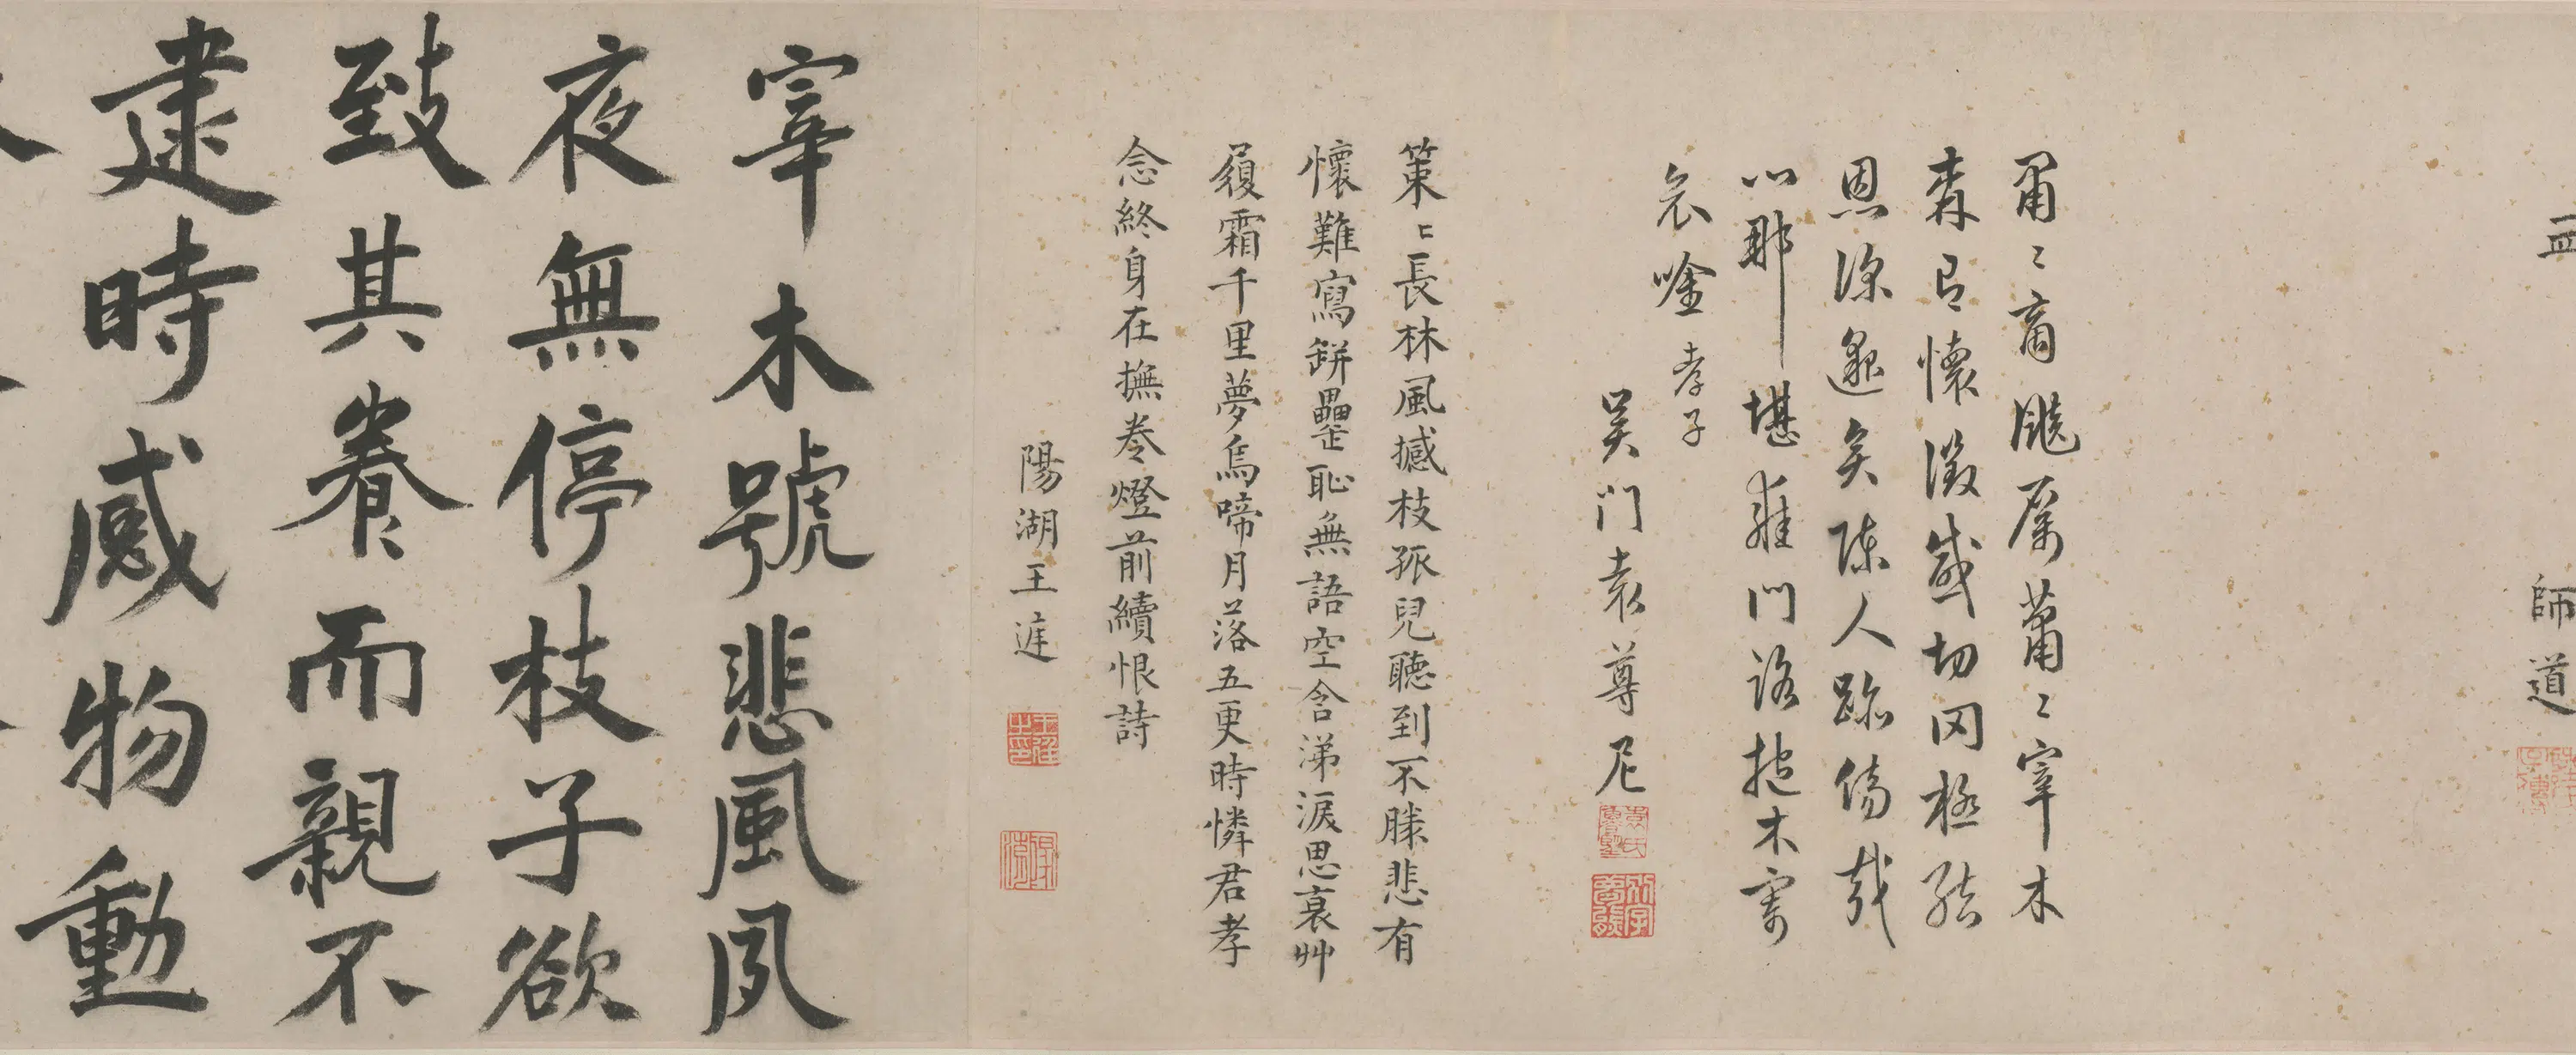 師道
肅〻商飈厲蕭〻宰木
森有懷徵感切罔極結
恩深邈矣陳人跡傷哉
心那堪雍門路抱木寄
哀唫 孝子
吳門袁尊尼
策〻長林風撼枝孤兒聽到不勝悲有
懷難寫缾罍恥無語空含涕淚思衰艸
履霜千里夢烏啼月落五更時憐君孝
念終身在撫卷燈前續恨詩
陽湖王
宰木號悲風夙
夜無停枝子欲
致其養〻而親不
逮時感物動